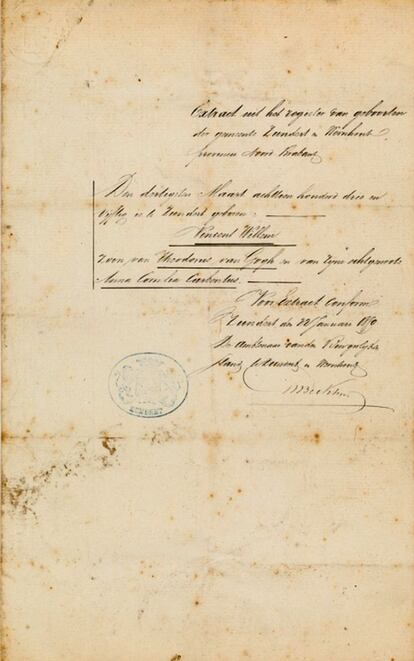 Extract uit het register van geboorten
der gemeente Zundert en Wernhout
provincie Noord Braband
Den dertigsten Maart achttien honderd drie en
vijftig is te Zundert geboren:
Vincent Willem
zoon van Theodorus van Gogh en van zijne echtgenoote
Anna Cornelia Carbentus.
Voor Extract Conform
Zundert den 22 Januari
De Ambtenaar van den Burgerlijken
stand te Zundert en Wernhout
ZUNDERT